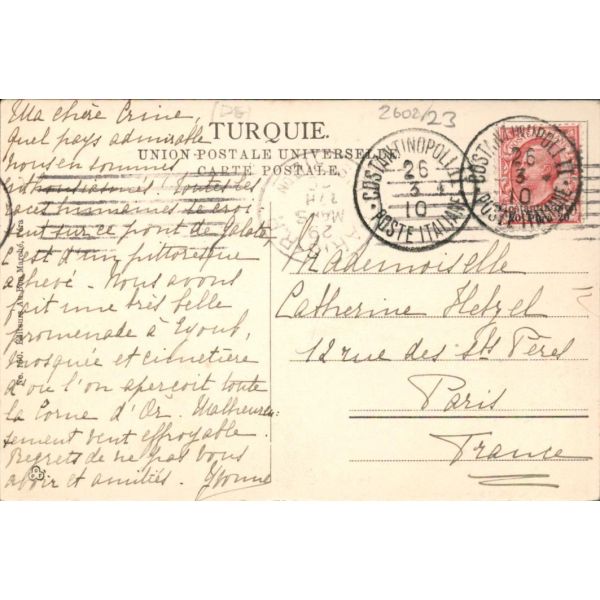 (DE)
2602/23
TURQUIE.
UNION POSTALE UNIVERSELLE
CARTE POSTALE.
COSTANTINOPOLI
26
3 4
10
POSTE ITALIANE
COSTANTINOPOLI
26
3 4
10
POSTE ITALIANE
Ma chère
Quel pays admirable
nous en sommes
Toutes les
races humaines se croi
sent sur ce pont de Galata
C'est d'un pittoresque
achevé. Nous avons
fait une très belle
promenade à Eyoub,
mosquée et cimetière
d'où l'on aperçoit toute
la Corne d'Or. Malheureu-
sement vent effroyable.
Regrets de ne pas vous
avoir et amitiés. Yvonne
Mademoiselle
Catherine Hetzel
12 rue des Sts Pères
Paris
France
Editeurs Au Bon Marché, Péra